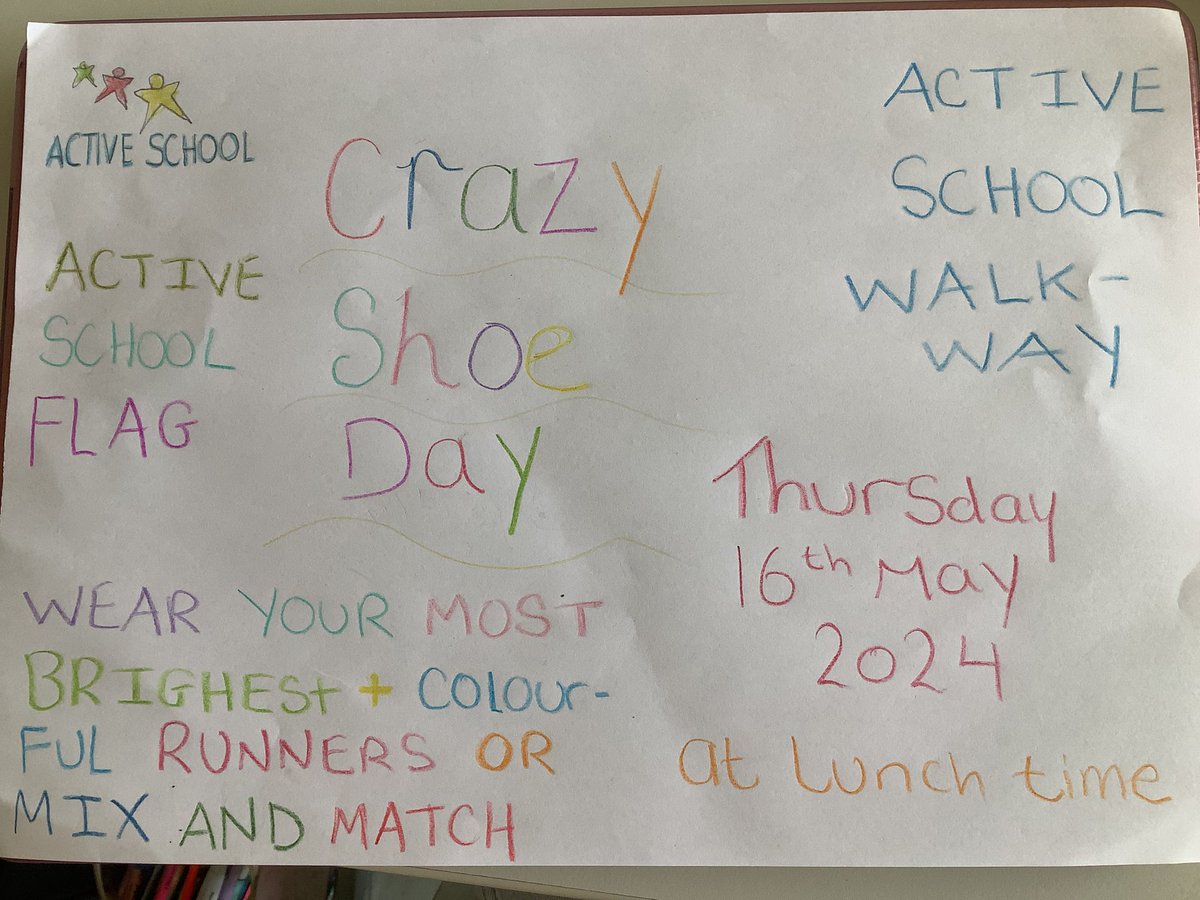 ACTIVE SCHOOL
ACTIVE
SCHOOL
FLAG
Crazy
Shoe
Day
ACTIVE
SCHOOL
WALK-
WAY
Thursday
16th May
2024
at lunch time
WEAR YOUR MOST
BRIGHESt + COLOUr-
FUL RUNNERS OR
MIX AND MATCH